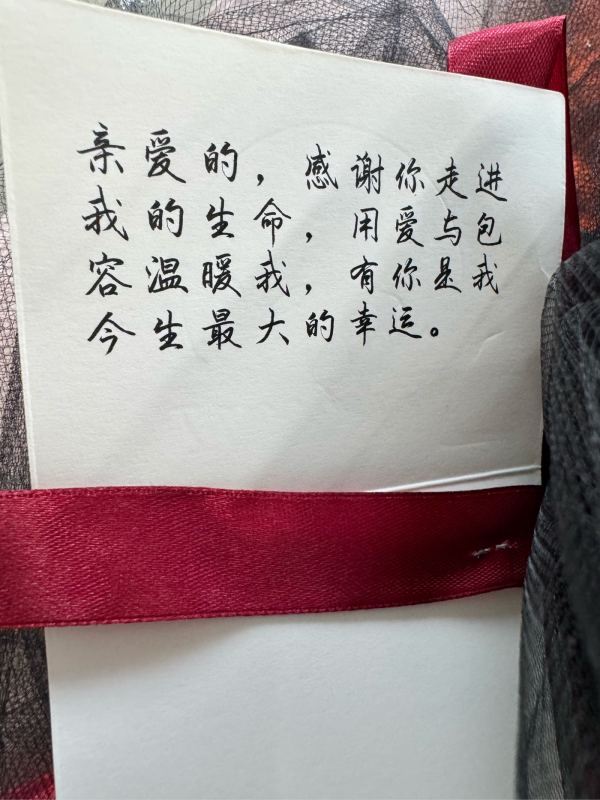 亲爱的，感谢你走进
我的生命，用爱与包
容温暖我，有你是我
今生最大的幸运。